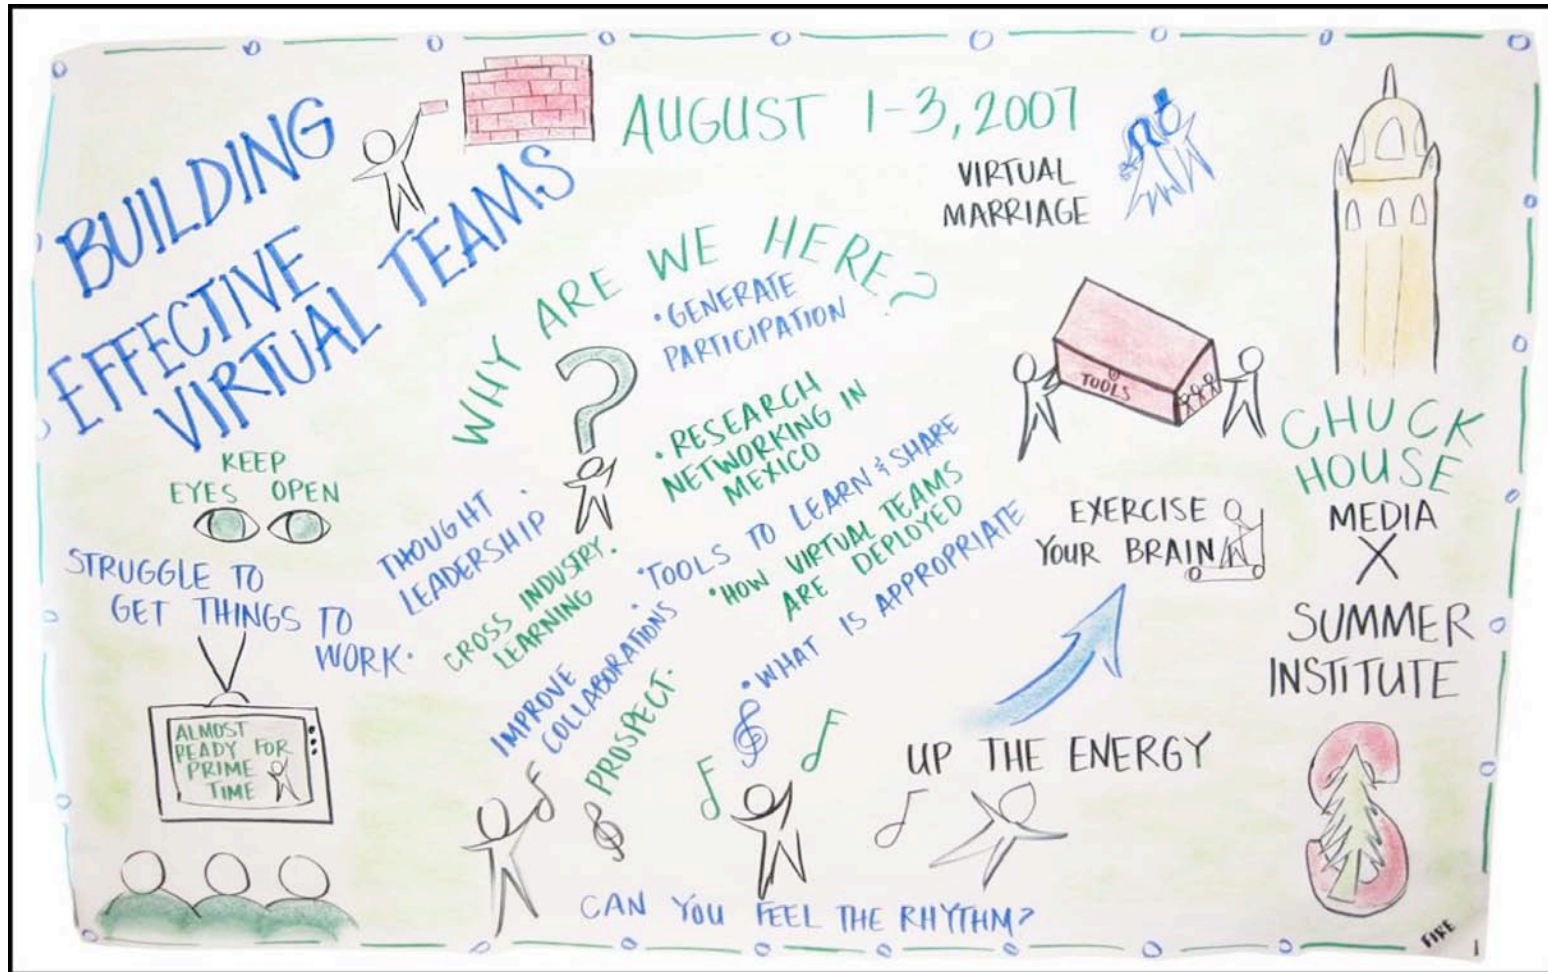 BUILDING
EFFECTIVE
VIRTUAL TEAMS
AUGUST 1-3, 2007
VIRTUAL
MARRIAGE
WHY ARE WE HERE?
• GENERATE
PARTICIPATION
• RESEARCH
NETWORKING IN
MEXICO
• TOOLS TO LEARN & SHARE
• HOW VIRTUAL TEAMS
ARE DEPLOYED
• WHAT IS APPROPRIATE
THOUGHT •
LEADERSHIP
CROSS INDUSTRY •
LEARNING
IMPROVE •
COLLABORATIONS
PROSPECT •
KEEP
EYES OPEN
STRUGGLE TO
GET THINGS TO
WORK •
ALMOST
READY FOR
PRIME
TIME
TOOLS
EXERCISE
YOUR BRAIN
UP THE ENERGY
CAN YOU FEEL THE RHYTHM?
CHUCK
HOUSE
MEDIA
X
SUMMER
INSTITUTE
S
FIRE
1